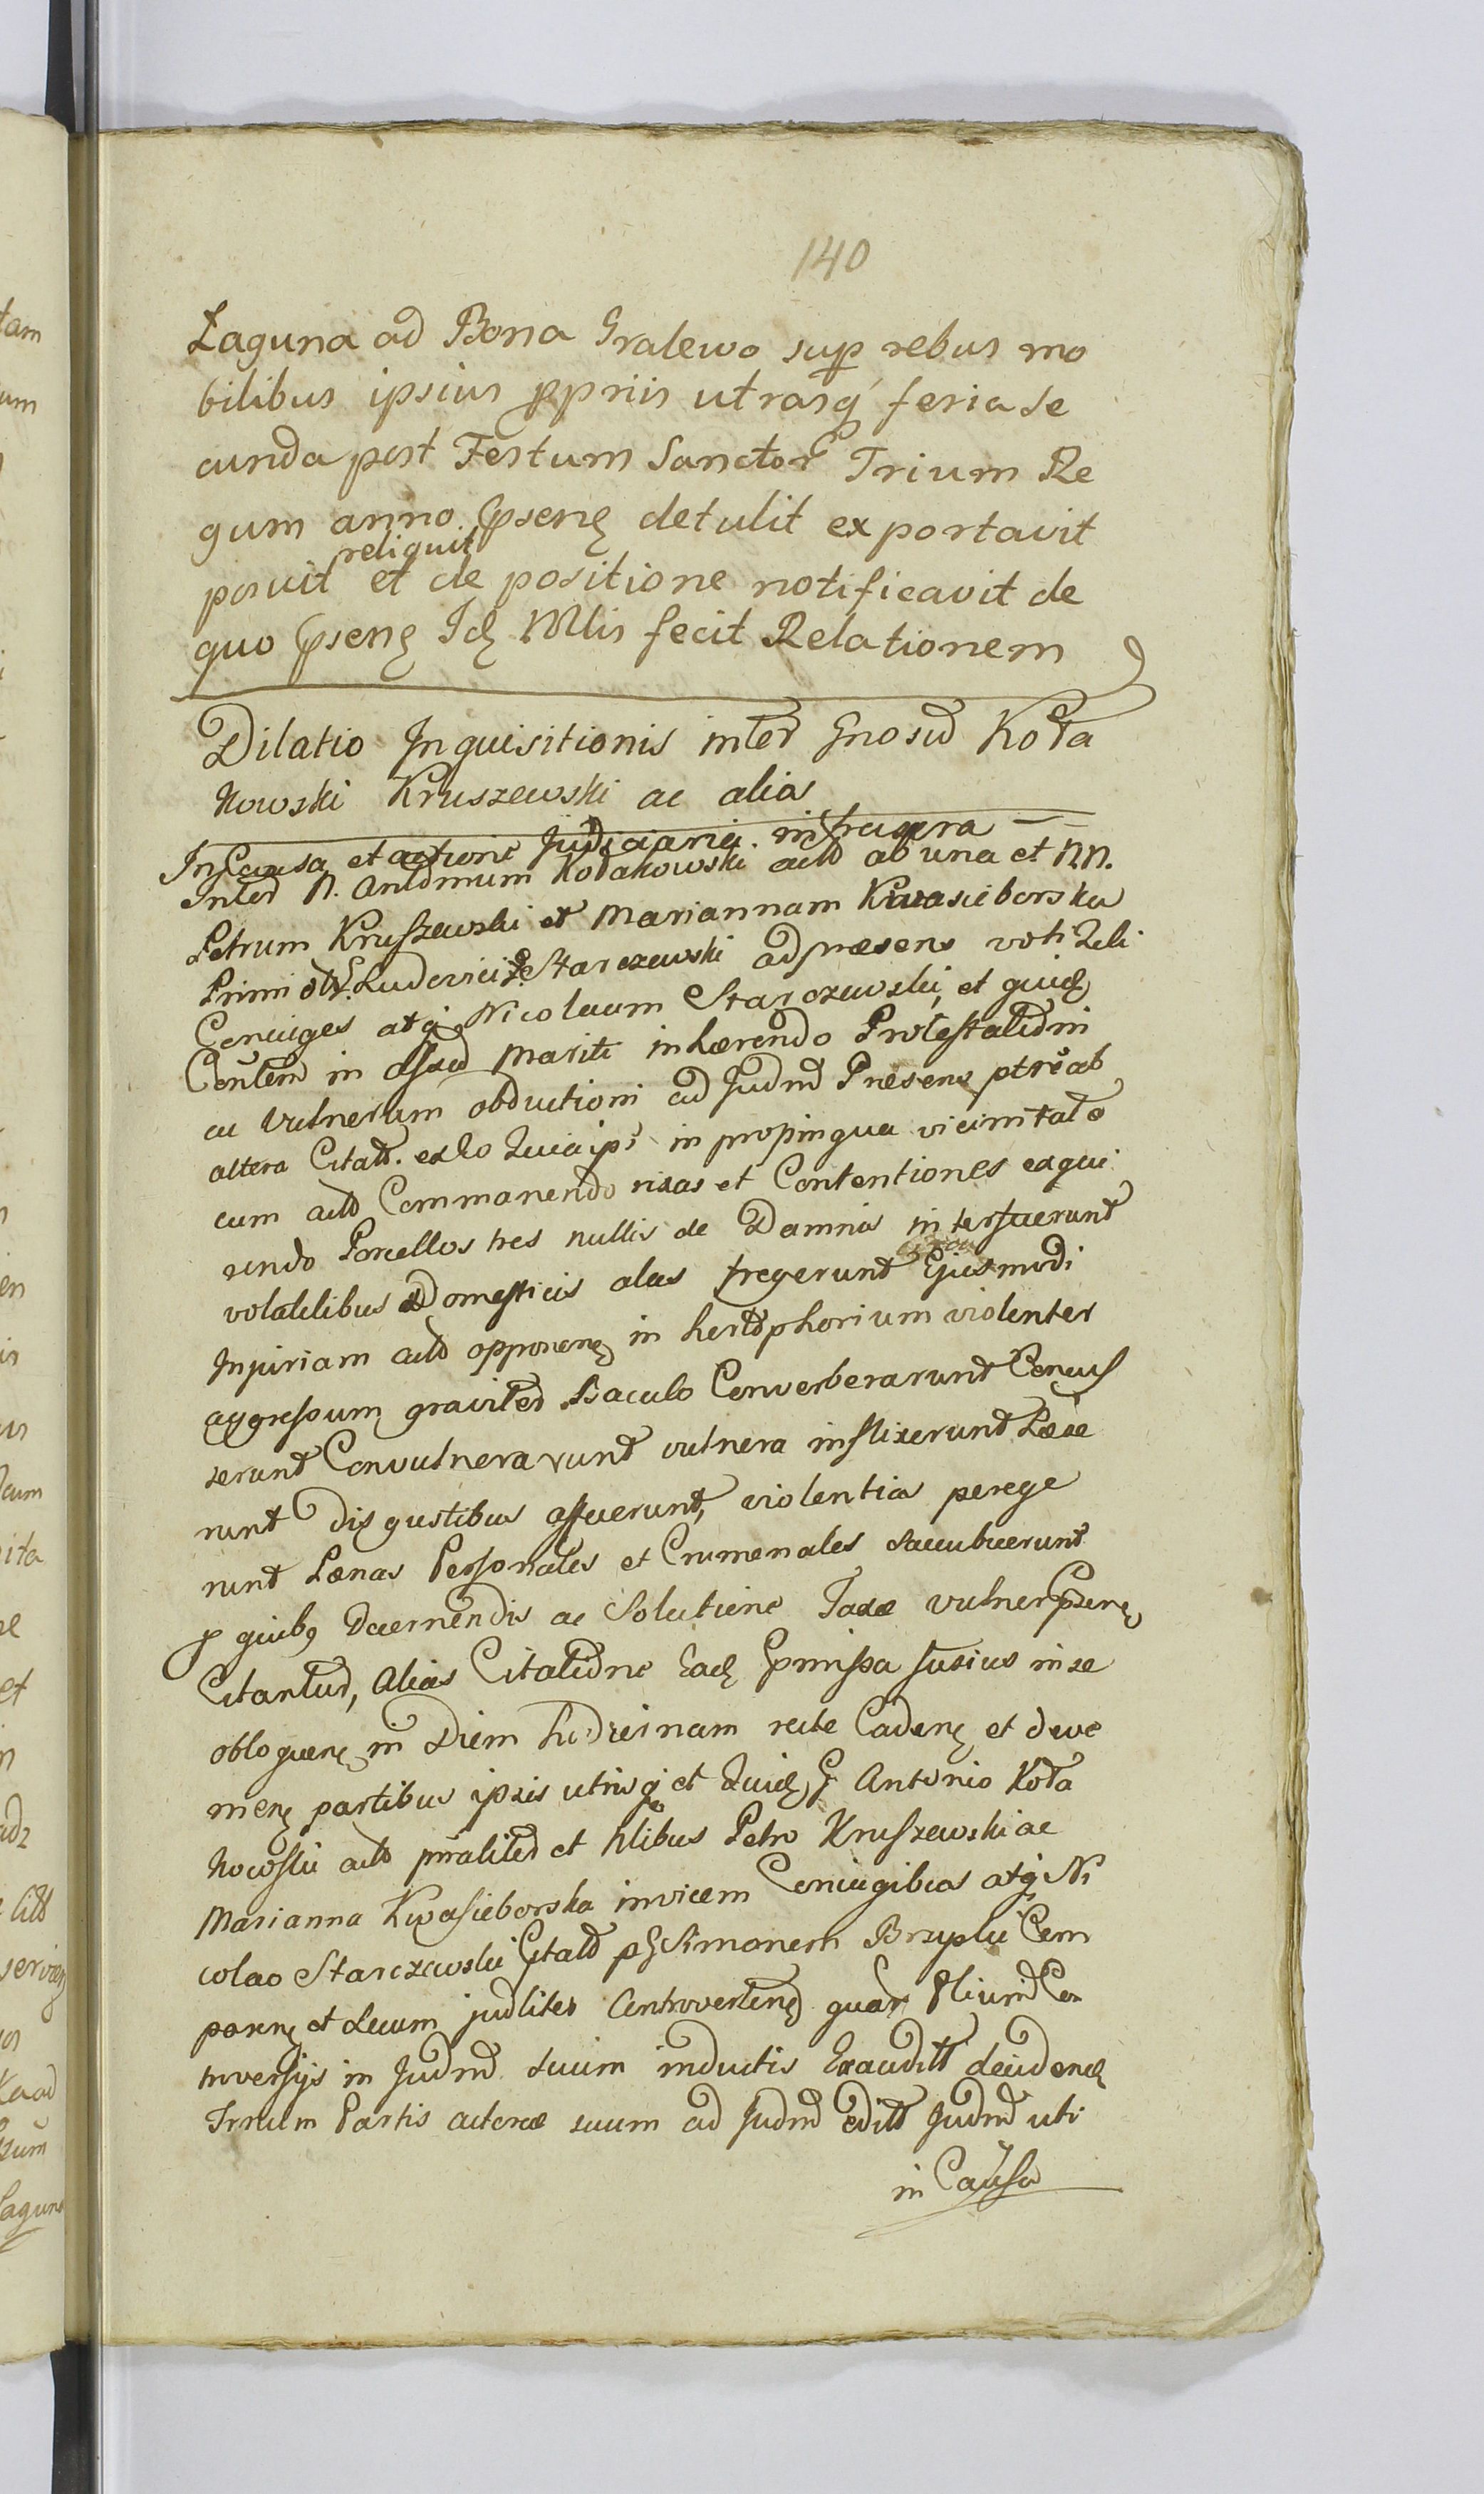 140
Laguna ad Bona Gralewo sup rebus mo
bilibus ipsius ppriis utrasq feria Se
cunda post Festum Sanctor Trium Re
gum anno pseng detulit exportavit
reliquit
posuit et de positione notificavit de
quo pseng Id Mlis fecit Relationem
Dilatio Inquisitionis inter Gnosu Kota
kowski Kruszewski ac alias
In Causa et actione Judiciaria infrascra
Inter N. Antonium Kotakowski acto ab una et NN.
Petrum Kruszewski et Mariannam Kwasieborska
Primi Ludovici Starczewski ad praesens voti
Coniuges atq Nicolaum Starczewski, et quid
in mariti inhaerendo Protestationi
ac vulnerum obductioni ad Judm Praesens ptre ab
altera Citatt. ex eo Quia ipsi in propinqua vicinitate
cum acto Commanendo rixas et Contentiones exqui
rendo Porcellos tres nullis de Damnis interfuerunt
volatilibus Domesticis alas fregerunt Ejusmodi
Injuriam acto opponeng in violenter
aggressum graviter Baculo Converberarunt Concus
serunt Convulnerarunt vulnera inflixerunt Laese
runt disgustibus affuerunt, violentias perege
runt Paenas Personales et Criminales succubuerunt
p quibq Decernendis ac Solutione Taxae vulner pseng
Citantur, Alias Citatione Ead pmissa fusius in se
obloqueng in Diem hodiernam recte Cadeng et deve
nieng partibus ipsis utrisq et Quid G Antonio Kota
kowski acto pnaliter et Nlibus Petro Kruszewski ac
Marianna Kwasieborska invicem Coniugibus atq Ni
colao Starczewski Citatt p G Simonem Com
pareng et secum judliter Controverteng quar Con
troversijs in Judm suum inductis Exauditt
Partis actoreae suum ad Judm editt Judm uti
in Causa